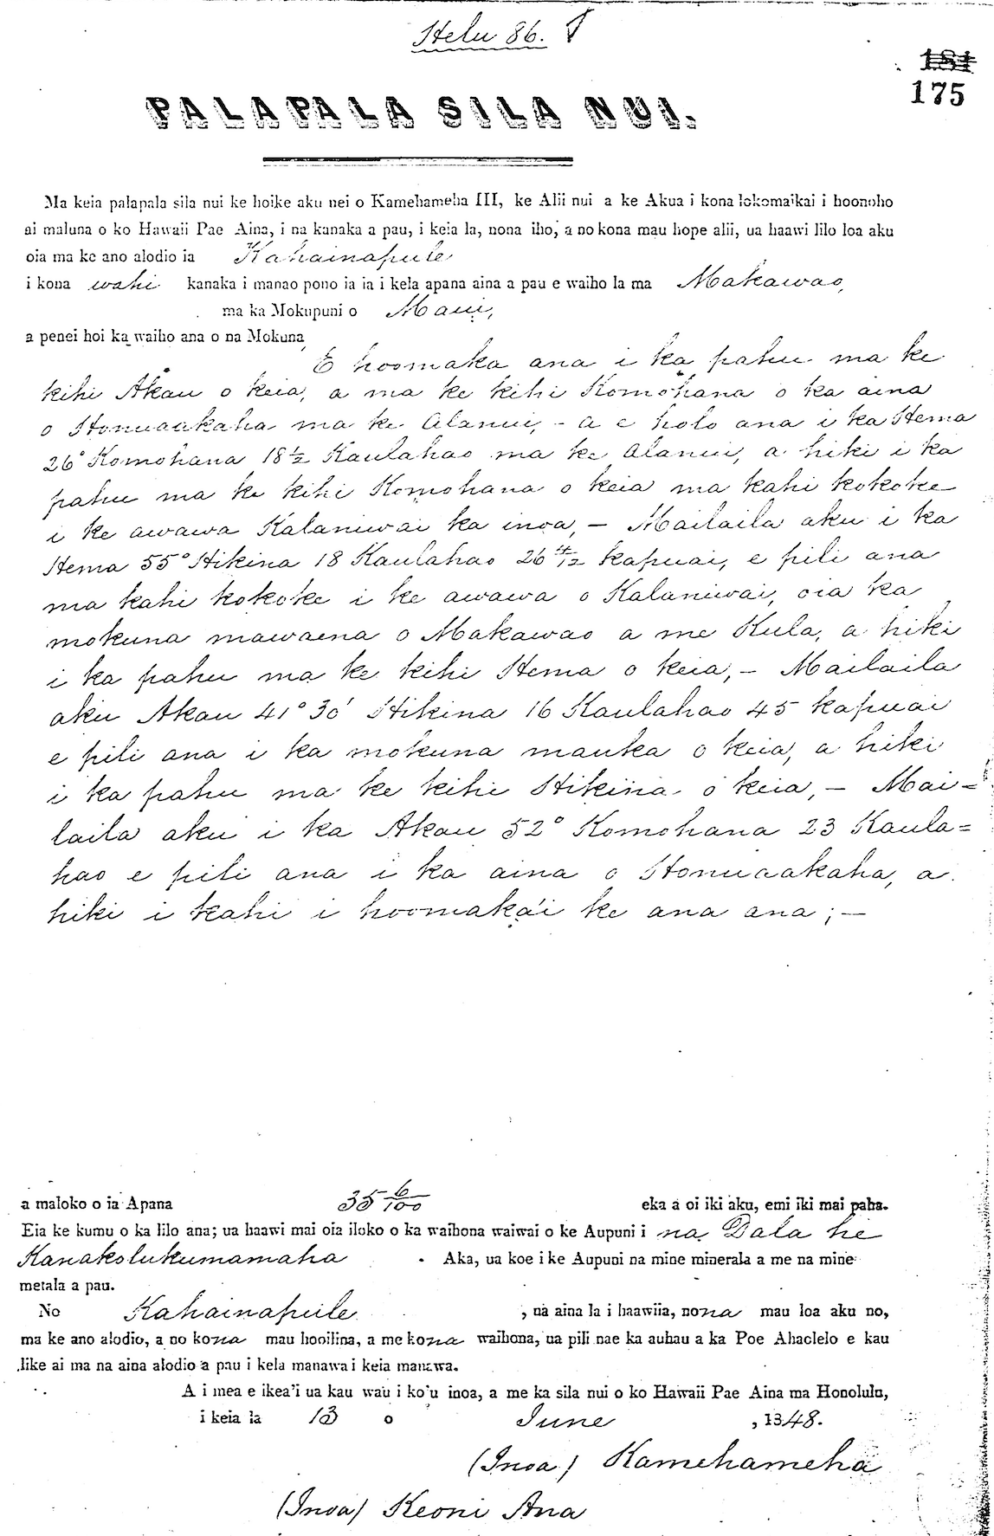 Helu 86.
181
175
PALAPALA SILA NUI.
Ma keia palapala sila nui ke hoike aku nei o Kamehameha III, ke Alii nui a ke Akua i kona lokomaikai i hoonoho
ai maluna o ko Hawaii Pae Aina, i na kanaka a pau, i keia la, nona iho, a no kona mau hope alii, ua haawi lilo loa aku
oia ma ke ano alodio ia Kahainapule
i kona wahi kanaka i manao pono ia ia i kela apana aina a pau e waiho la ma Makawao,
ma ka Mokupuni o Maui,
a penei hoi ka waiho ana o na Mokuna
E hoomaka ana i ka pahu ma ke
kihi Akau o keia, a ma ke kihi Komohana o ka aina
o Honuaakaha ma ke Alanui, - a e holo ana i ka Hema
26° Komohana 18½ Kaulahao ma ke Alanui, a hiki i ka
pahu ma ke kihi Komohana o keia ma kahi kokoke
i ke awawa Kalaniwai ka inoa, — Mailaila aku i ka
Hema 55° Hikina 18 Kaulahao 26 4/12 kapuai, e pili ana
ma kahi kokoke i ke awawa o Kalaniwai, oia ka
mokuna mawaena o Makawao a me Kula, a hiki
i ka pahu ma ke kihi Hema o keia, — Mailaila
aku Akau 41° 30' Hikina 16 Kaulahao 45 kapuai
e pili ana i ka mokuna mauka o keia, a hiki
i ka pahu ma ke kihi Hikina o keia, — Mai=
laila aku i ka Akau 52° Komohana 23 Kaula=
hao e pili ana i ka aina o Honuaakaha, a
hiki i kahi i hoomaka'i ke ana ana; —
a maloko o ia Apana 35 6/100 eka a oi iki aku, emi iki mai paha.
Eia ke kumu o ka lilo ana; ua haawi mai oia iloko o ka waihona waiwai o ke Aupuni i na Dala he
Kanakolukumamaha . Aka, ua koe i ke Aupuni na mine minerala a me na mine
metala a pau.
No Kahainapule , na aina la i haawiia, nona mau loa aku no,
ma ke ano alodio, a no kona mau hooilina, a me kona waihona, ua pili nae ka auhau a ka Poe Ahaolelo e kau
like ai ma na aina alodio a pau i kela manawa i keia manawa.
A i mea e ikea'i ua kau wau i ko'u inoa, a me ka sila nui o ko Hawaii Pae Aina ma Honolulu,
i keia la 13 o June , 1848.
(Inoa) Kamehameha
(Inoa) Keoni Ana